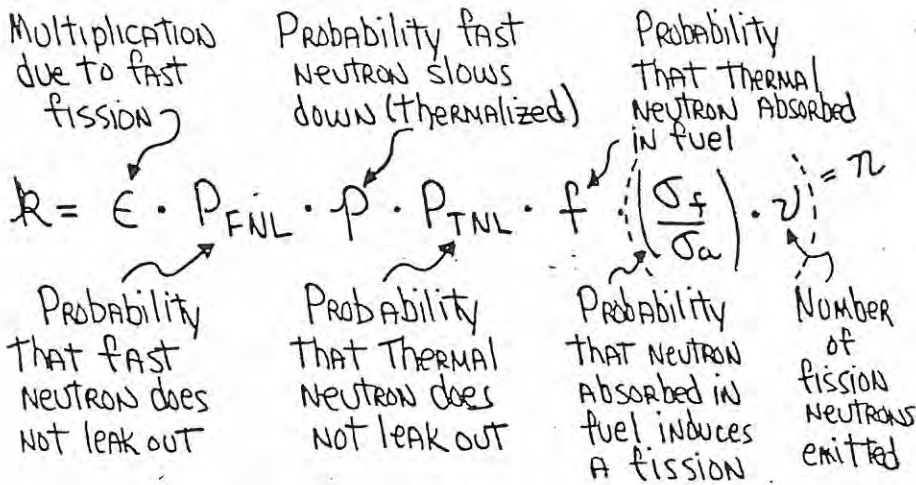 Multiplication
due to fast
fission
Probability fast
neutron slows
down (thermalized)
Probability
that thermal
neutron absorbed
in fuel
k = ϵ · P_FNL · p · P_TNL · f · (σ_f / σ_a) · ν = η
Probability
that fast
neutron does
not leak out
Probability
that thermal
neutron does
not leak out
Probability
that neutron
absorbed in
fuel induces
a fission
Number
of
fission
neutrons
emitted